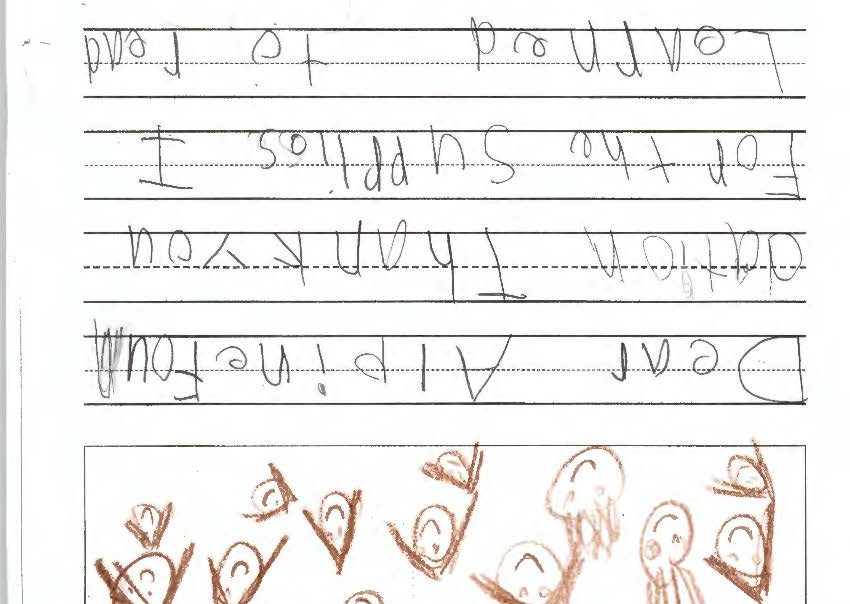 Dear Alpine Foun
dation Thank you
For the Supplies I
Learned to read